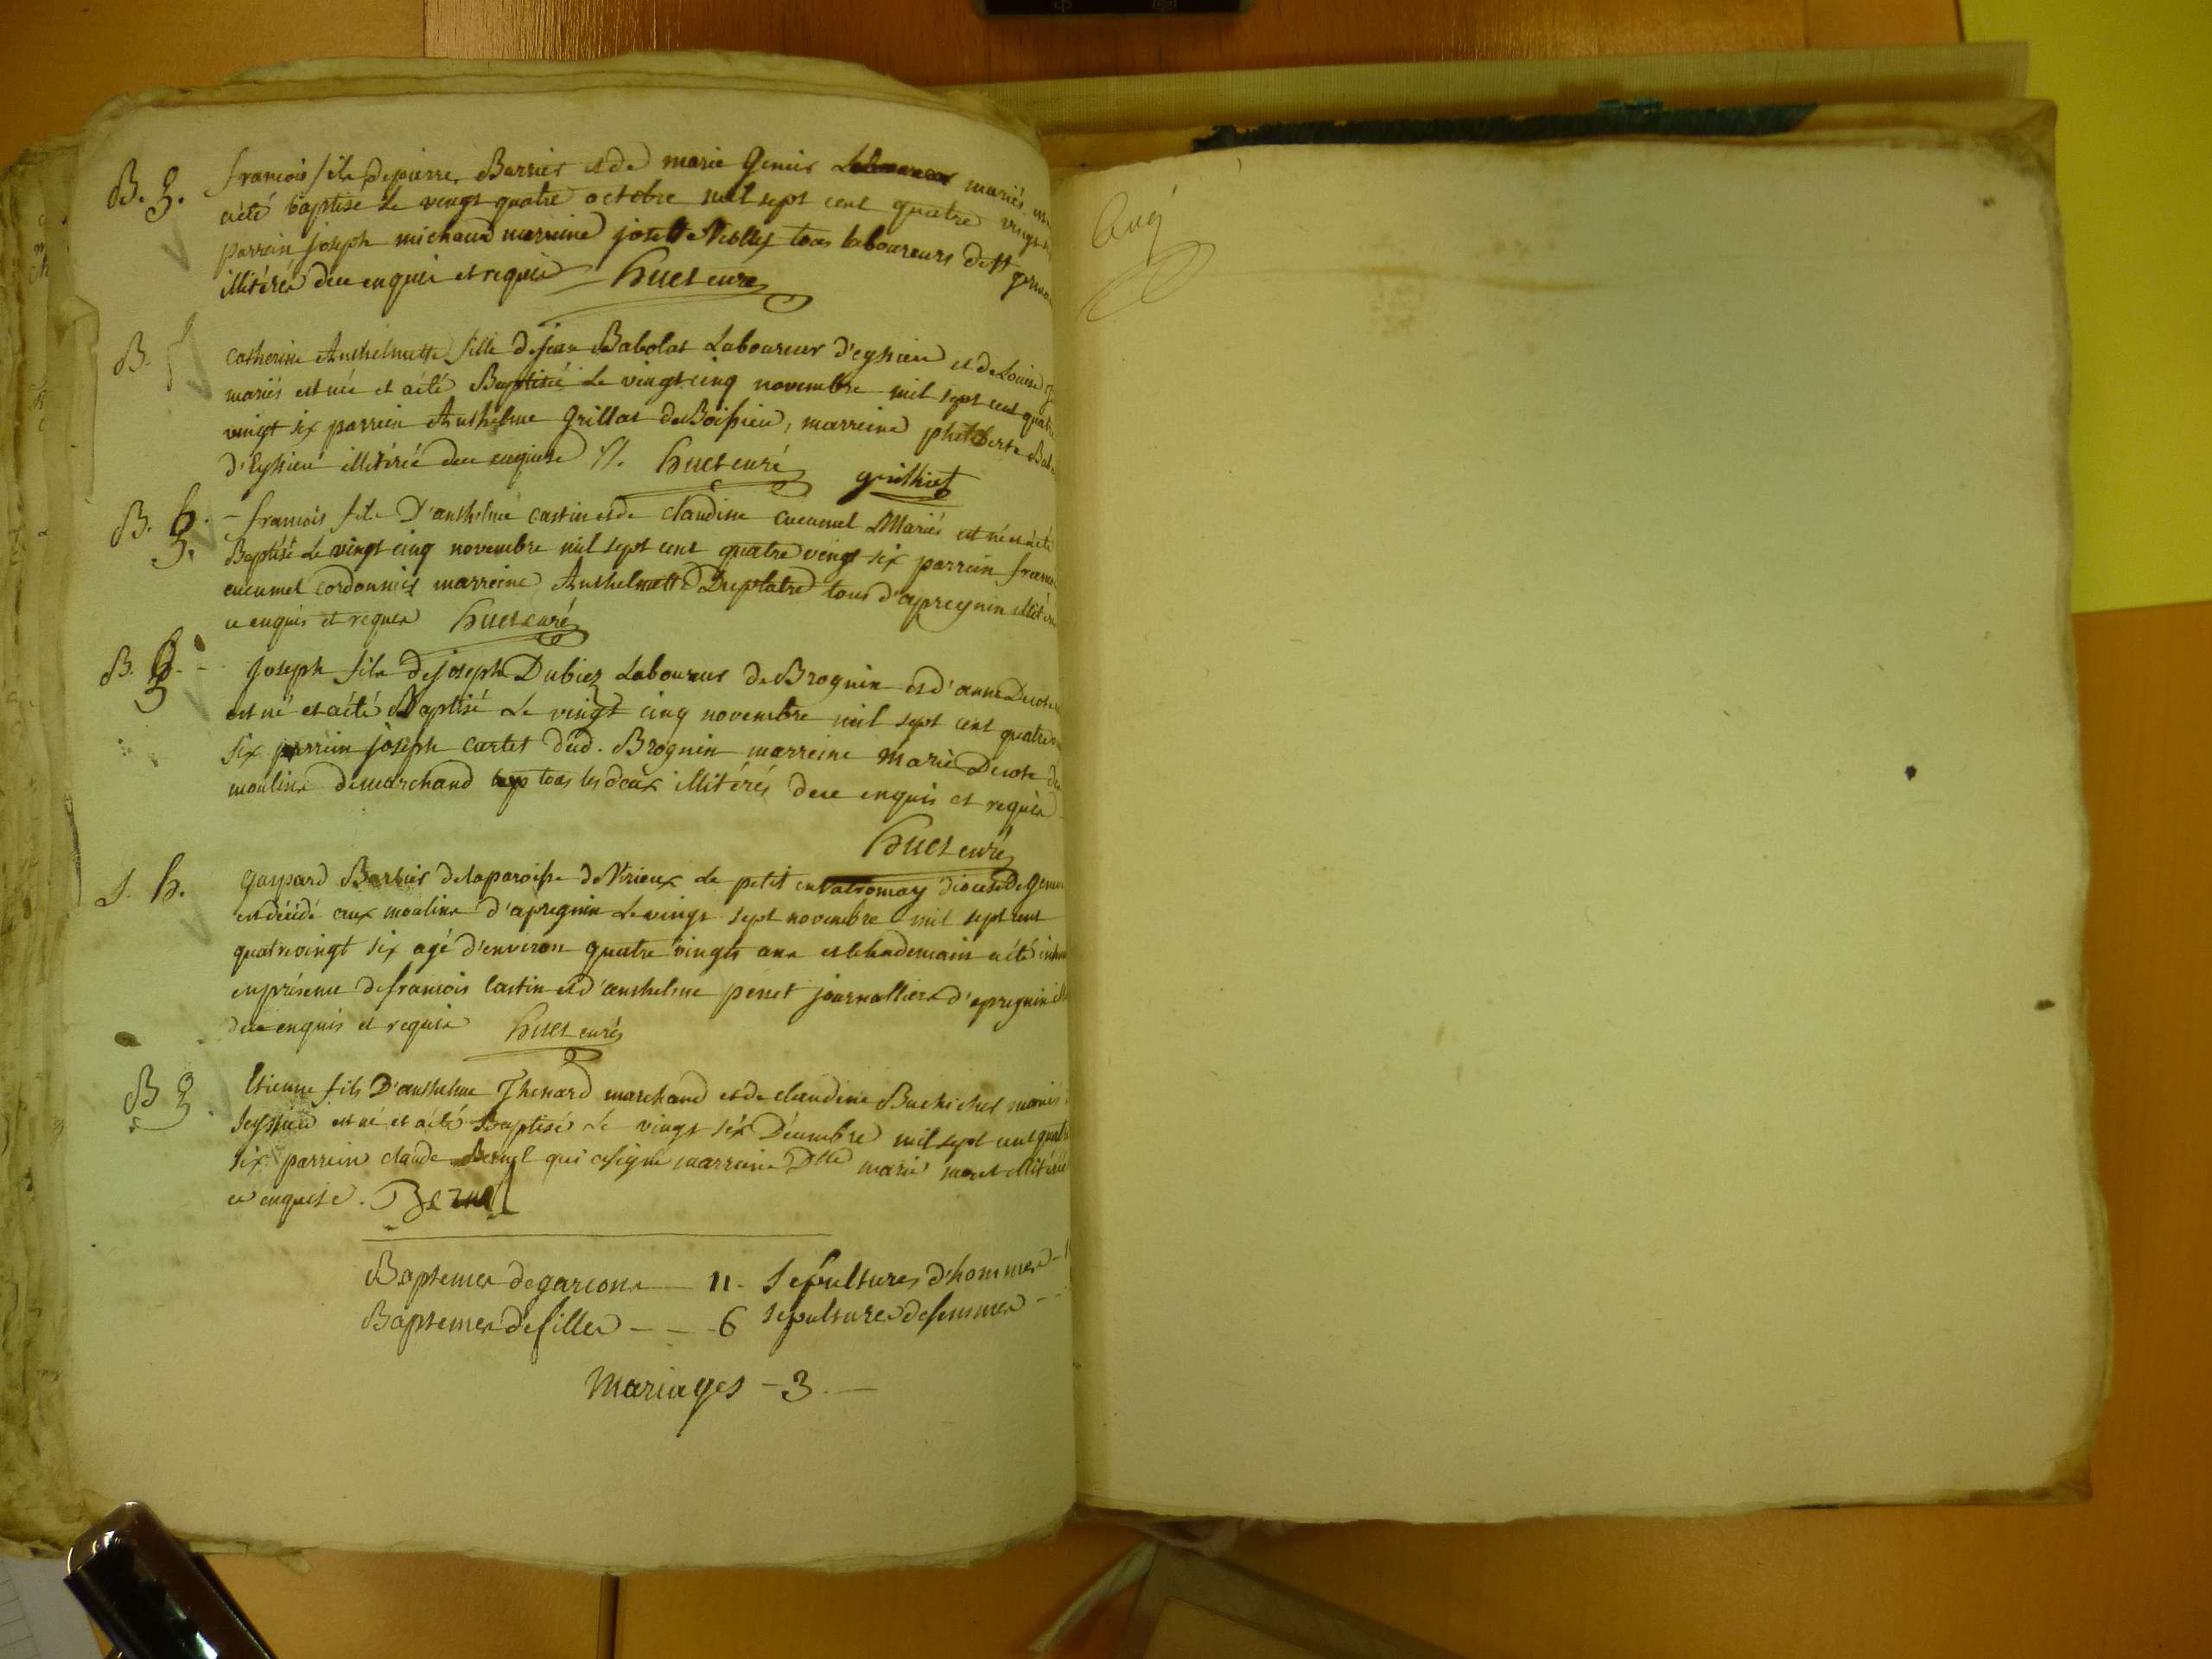 B. g. francois fils de pierre Barrier et de marie Genier mariés
a été baptisé Le vingt quatre octobre mil sept cent quatre vingt
parrein joseph michaud marreine josette tous laboureurs de St germ
illitérés de ce enquis et requis Huet curé
B. f catherine Anthelmette fille de jean Babolat Laboureur d'eyssieu et de Louise
mariés est née et a été Baptisée Le vingt cinq novembre mil sept cent quatre
vingt six parrein Anthelme Grillat de Boissieu, marreine philiberte Bab
d'Eyssieu illitérée de ce enquise //. Huet curé
B. g. - francois fils D'anthelme castin et de claudine cucumel Mariés est né et a été
Baptisé Le vingt cinq novembre mil sept cent quatre vingt six parrein franc
cucumel cordonnier marreine Anthelmette Duplatre tous d'apregnin illitér
ce enquis et requis Huet curé
B. g. - joseph fils de joseph Dubiez Laboureur de Brognin et d'anne Decote
est né et a été Baptisé Le vingt cinq novembre mil sept cent quatre
six parrein joseph cartet dud. Brognin marreine Marie Decote de
moulins de marchand tous les deux illitérés de ce enquis et requis
Huet curé
S. h. gaspard Barbier de la paroisse de Virieux Le petit en valromay diocese De Genev
est décédé aux moulins d'apregnin Le vingt sept novembre mil sept cent
quatrevingt six agé d'environ quatre vingts ans et le lendemain a été inhum
en présence de francois castin et d'anthelme perret journalliers d'apregnin ill
de ce enquis et requis Huet curé
B g. Etienne fils D'anthelme Thenard marchand et de claudine mariés
est né et a été Baptisé Le vingt six Décembre mil sept cent quatre
six parrein claude qui a signé marraine Dlle marie illitérée
ce enquise.
Baptemes de garcons - 11 - Sepultures d'hommes -
Baptemes de filles - - - 6 sepultures de femmes - -
Mariages - 3 - -